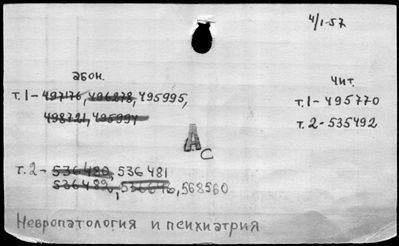 4/1-57
абон.
чит.
т.1- 497176, 496878, 495995,
т.1-495770
498721, 495994
т.2-535492
А
С
т.2- 536480, 536481
536482, 568560
Невропатология и психиатрия